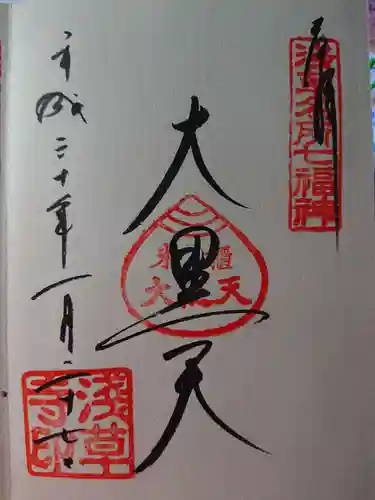 奉拝
浅草名所七福神
大黒天
大黒天
平成二十年一月二十七日
浅草寺印